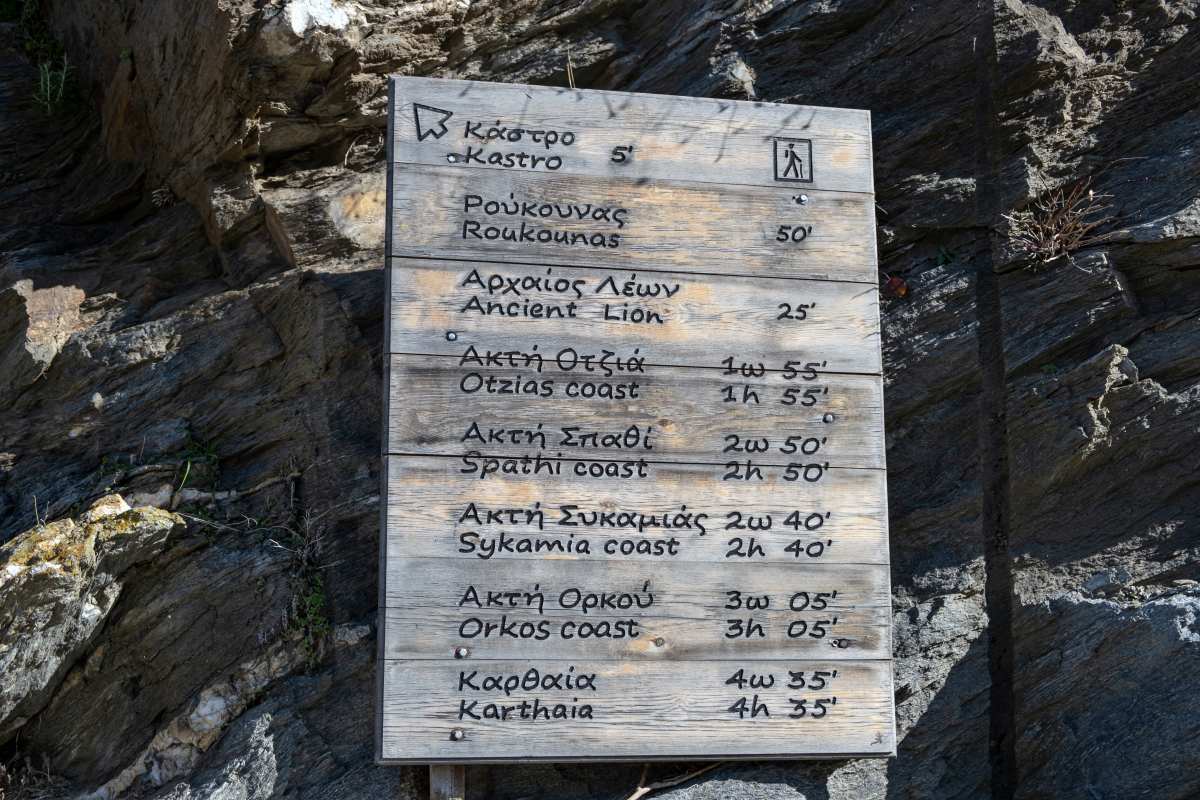 Κάστρο
Kastro 5'
Ρούκουνας
Roukounas 50'
Αρχαίος Λέων
Ancient Lion 25'
Ακτή Οτζιά 1ω 55'
Otzias coast 1h 55'
Ακτή Σπαθί 2ω 50'
Spathi coast 2h 50'
Ακτή Συκαμιάς 2ω 40'
Sykamia coast 2h 40'
Ακτή Ορκού 3ω 05'
Orkos coast 3h 05'
Καρθαία 4ω 35'
Karthaia 4h 35'